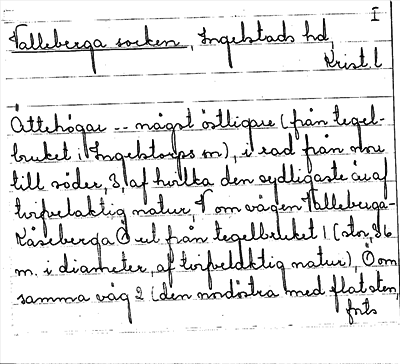 I
Valleberga socken, Ingelstads hd,
Krist. l
Ättehögar -- något östligare (från tegel-
bruket i Ingelstorps sn), i rad från norr
till söder, 3, af hvilka den sydligaste är af
tvifvelaktig natur, V om vägen Valleberga-
Kåseberga Ö ut från tegelbruket 1 (stor, 36
m. i diameter, af tvifvelaktig natur), Ö om
samma väg 2 (den nordöstra med flat sten,
forts